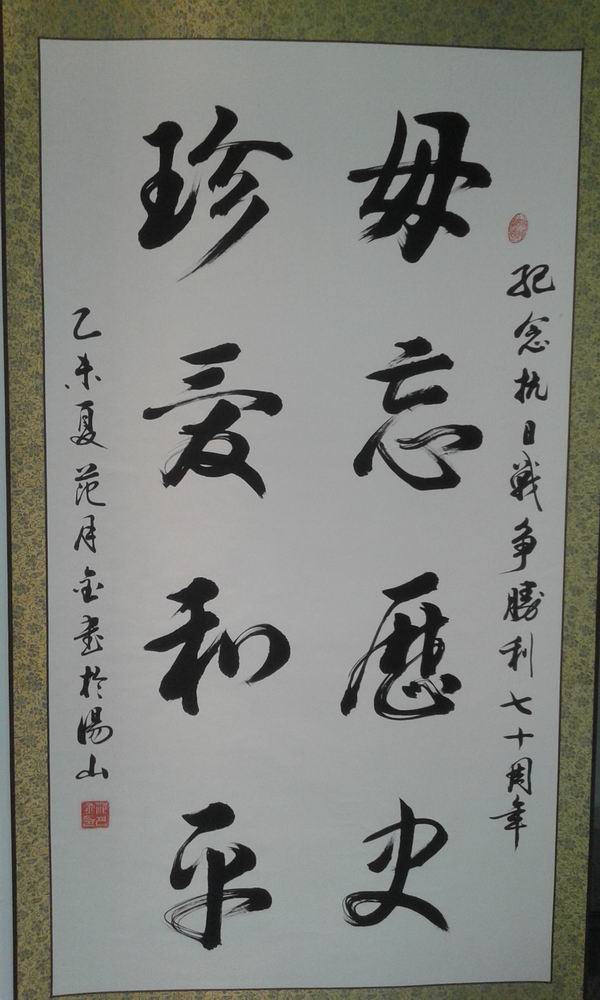 紀念抗日戦争勝利七十周年
毋忘歷史
珍爱和平
乙未夏范月金書於湯山